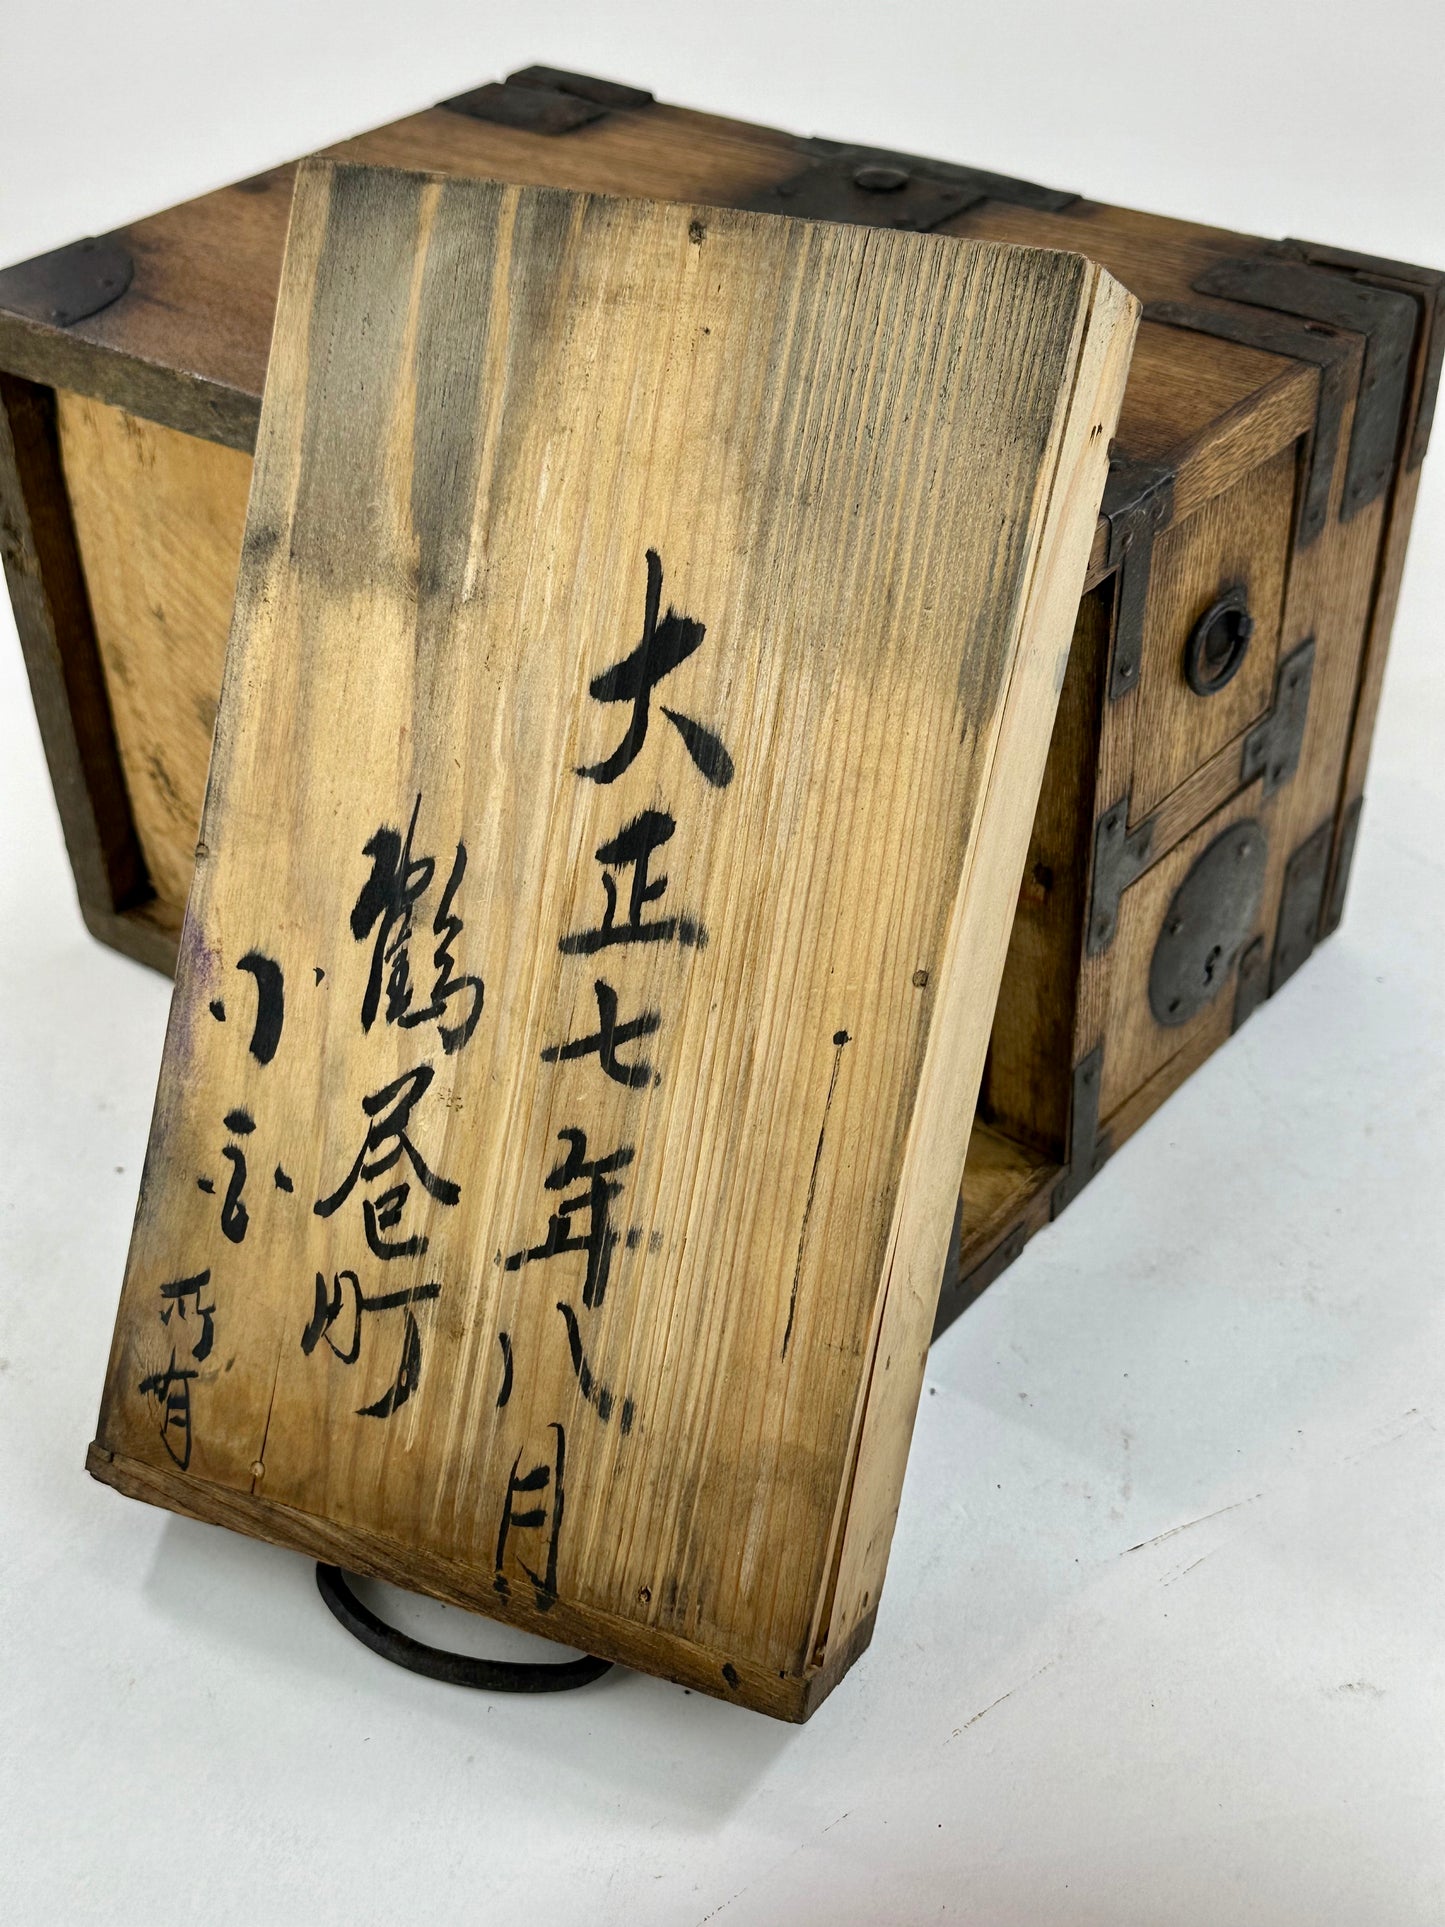 大正七年八月
鶴巻町
小 所有